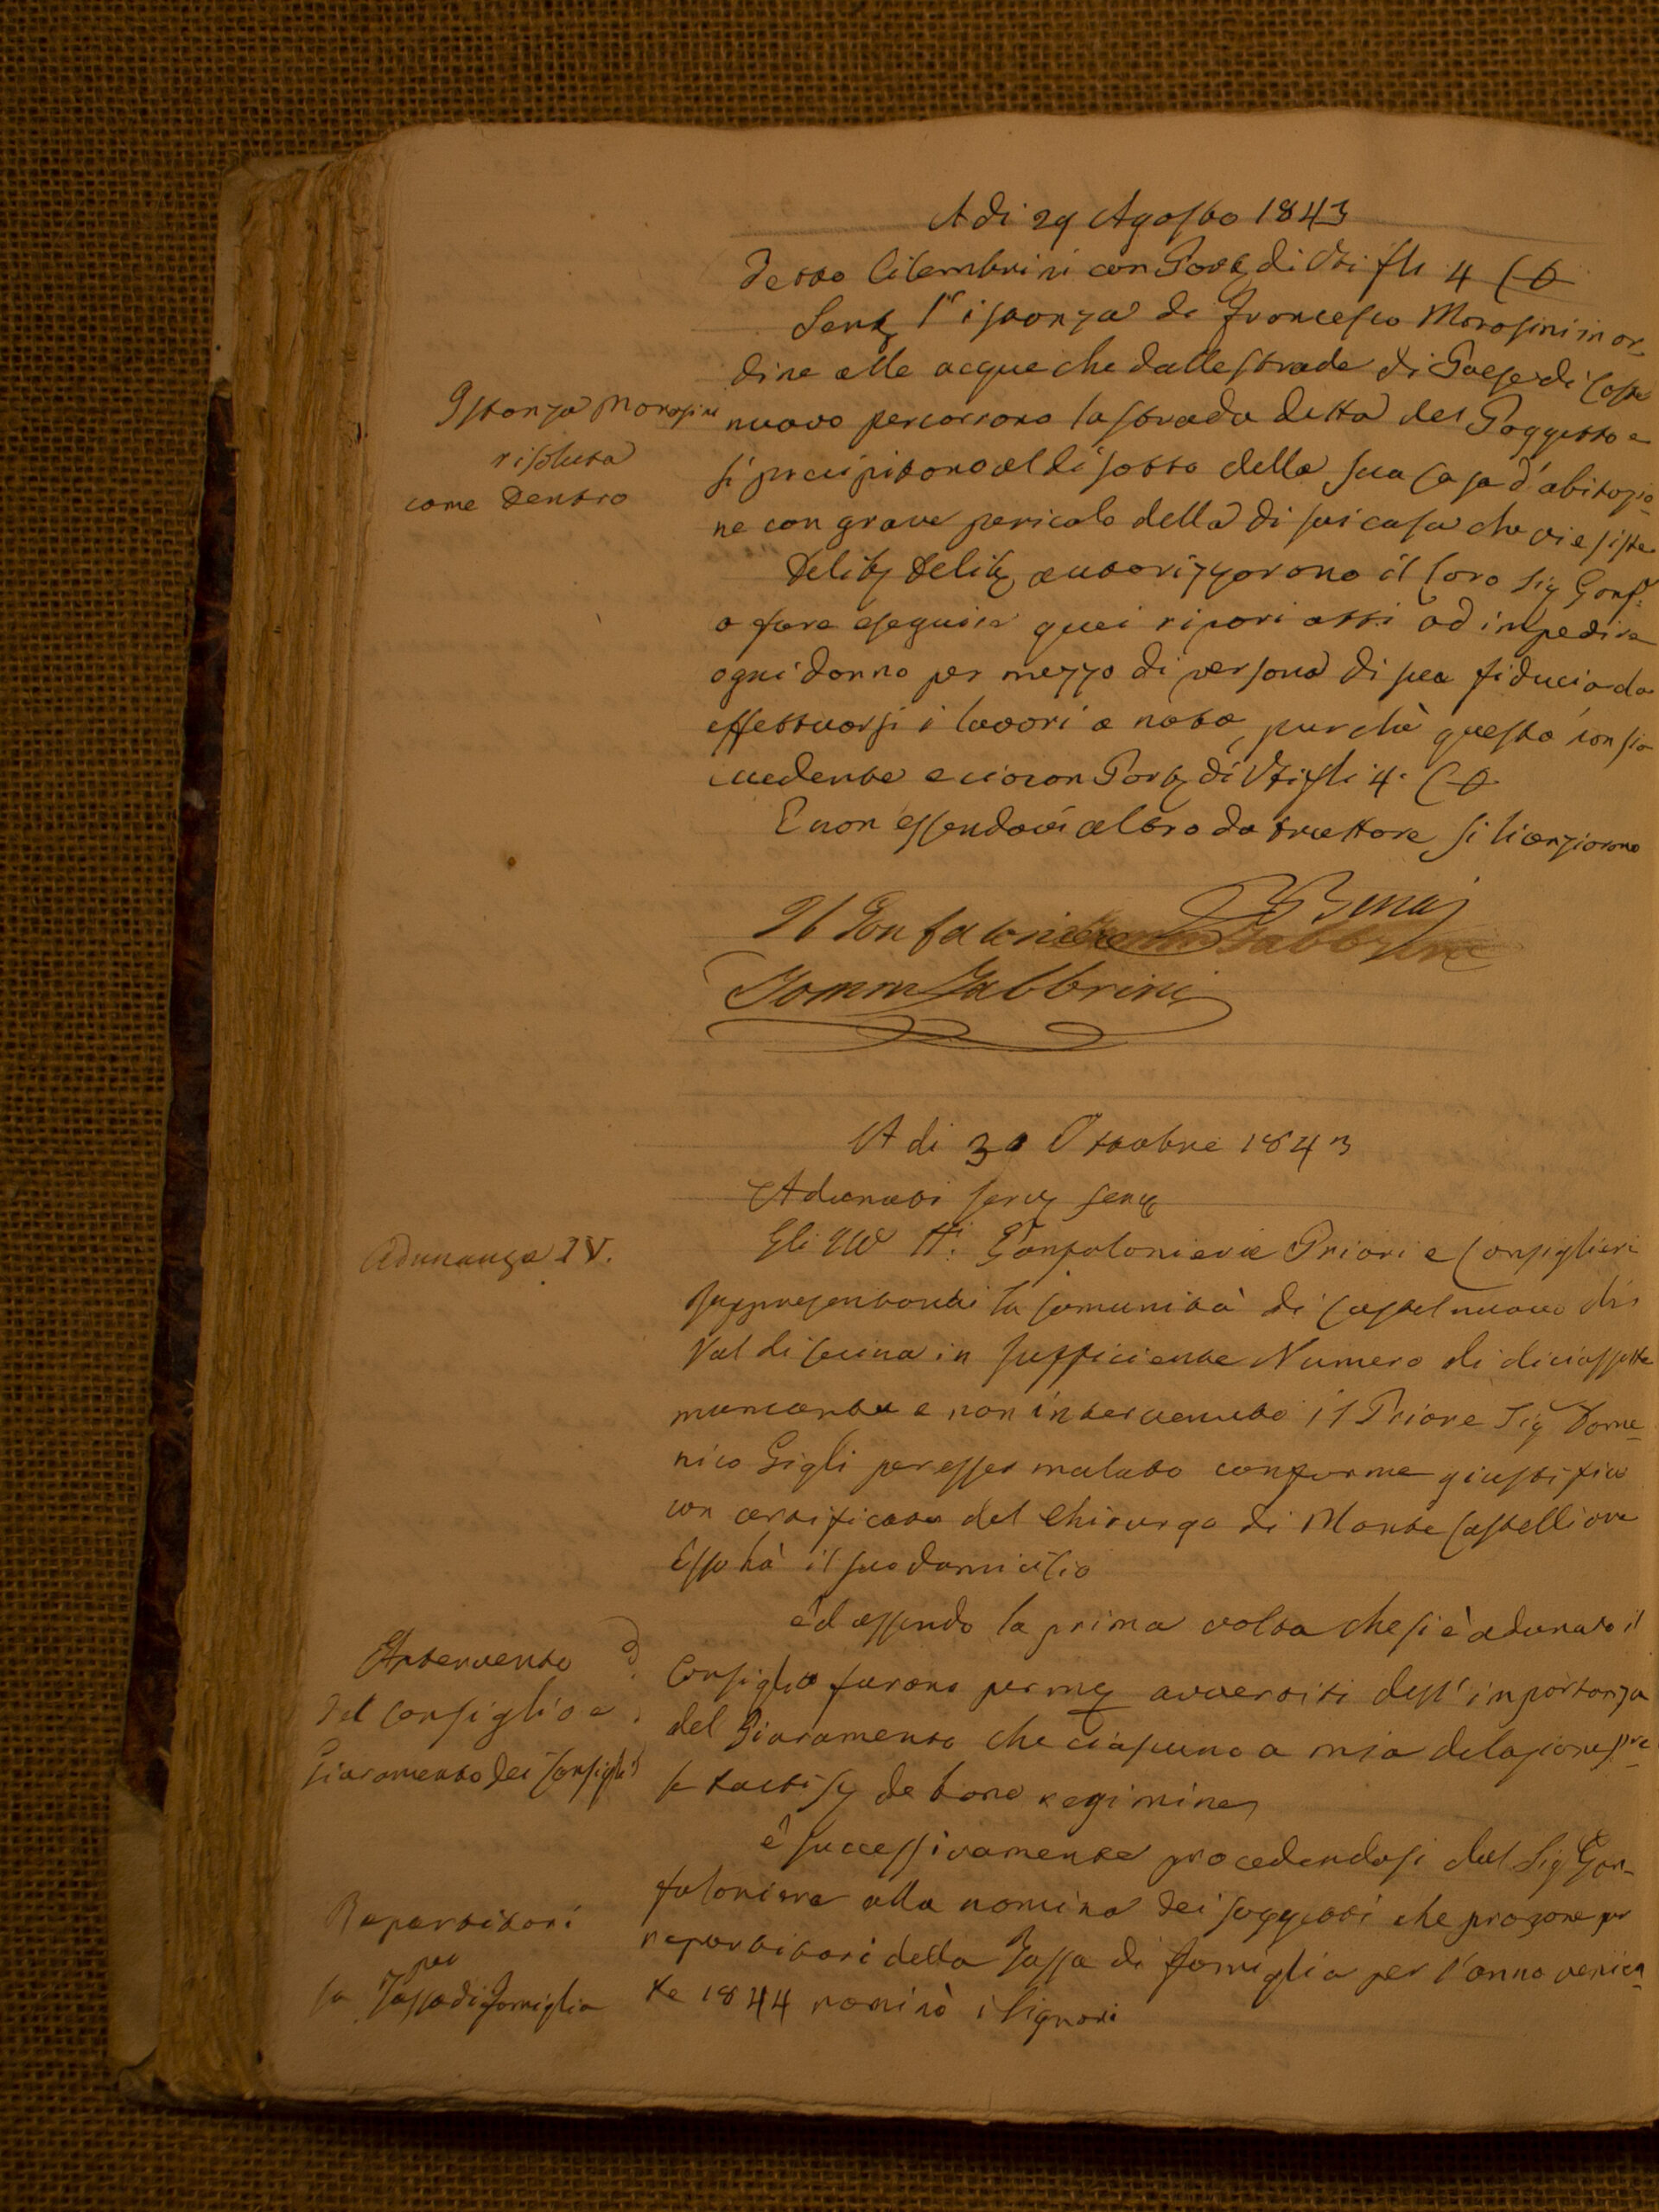 A di 29 Agosto 1843
detto Cilembrini con Part. di Voti fli 4 C 0
Sent. l'istanza di Francesco Morosini in or-
dine alle acque che dalle strade di Paese di Castel
Istanza Morosini
nuovo percorrono la strada detta del Poggetto e
risoluta
si precipitono al di sotto della sua casa d'abitazio-
come dentro
ne con grave pericolo della di lui casa che vi esiste
Delib. Delib. autorizzorono il loro Sig Gonf.
a fare eseguire quei ripari atti ad impedire
ogni danno per mezzo di persona di sua fiducia da
effettuarsi i lavori a nota, purché questa non sia
eccedente e ciò con Part. di Voti fli 4. C 0.
E non essendovi altro da trattare si licenziorono
Il Gonfaloniere
Tomm Gabbrini
A di 30 Ottobre 1843
Adunati serv. serv.
Adunanza IV.
Gli Ill. ti. Gonfaloniere Priori e Consiglieri
rappresentanti la Comunità di Castelnuovo di
Val di Cecina in sufficiente Numero di diciassette
mancante e non intervenuto il Priore Sig Dome-
nico Gigli per esser malato conforme giustificò
con certificato del Chirurgo di Monte Castelli ove
esso hà il suo domicilio
ed essendo la prima volta che si è adunato il
Intervento
Consiglio furono per me avvertiti dell'importanza
del Consiglio e
del Giuramento che ciascuno a mia delazione pre-
Giuramento dei Consigli
se tactis de bono regimine
e successivamente procedendosi dal Sig Gon-
faloniere alla nomina dei soggetti che propone per
Repartitori
repartitori della Tassa di famiglia per l'anno venien-
per
la Tassa di famiglia
te 1844 nominò i Signori